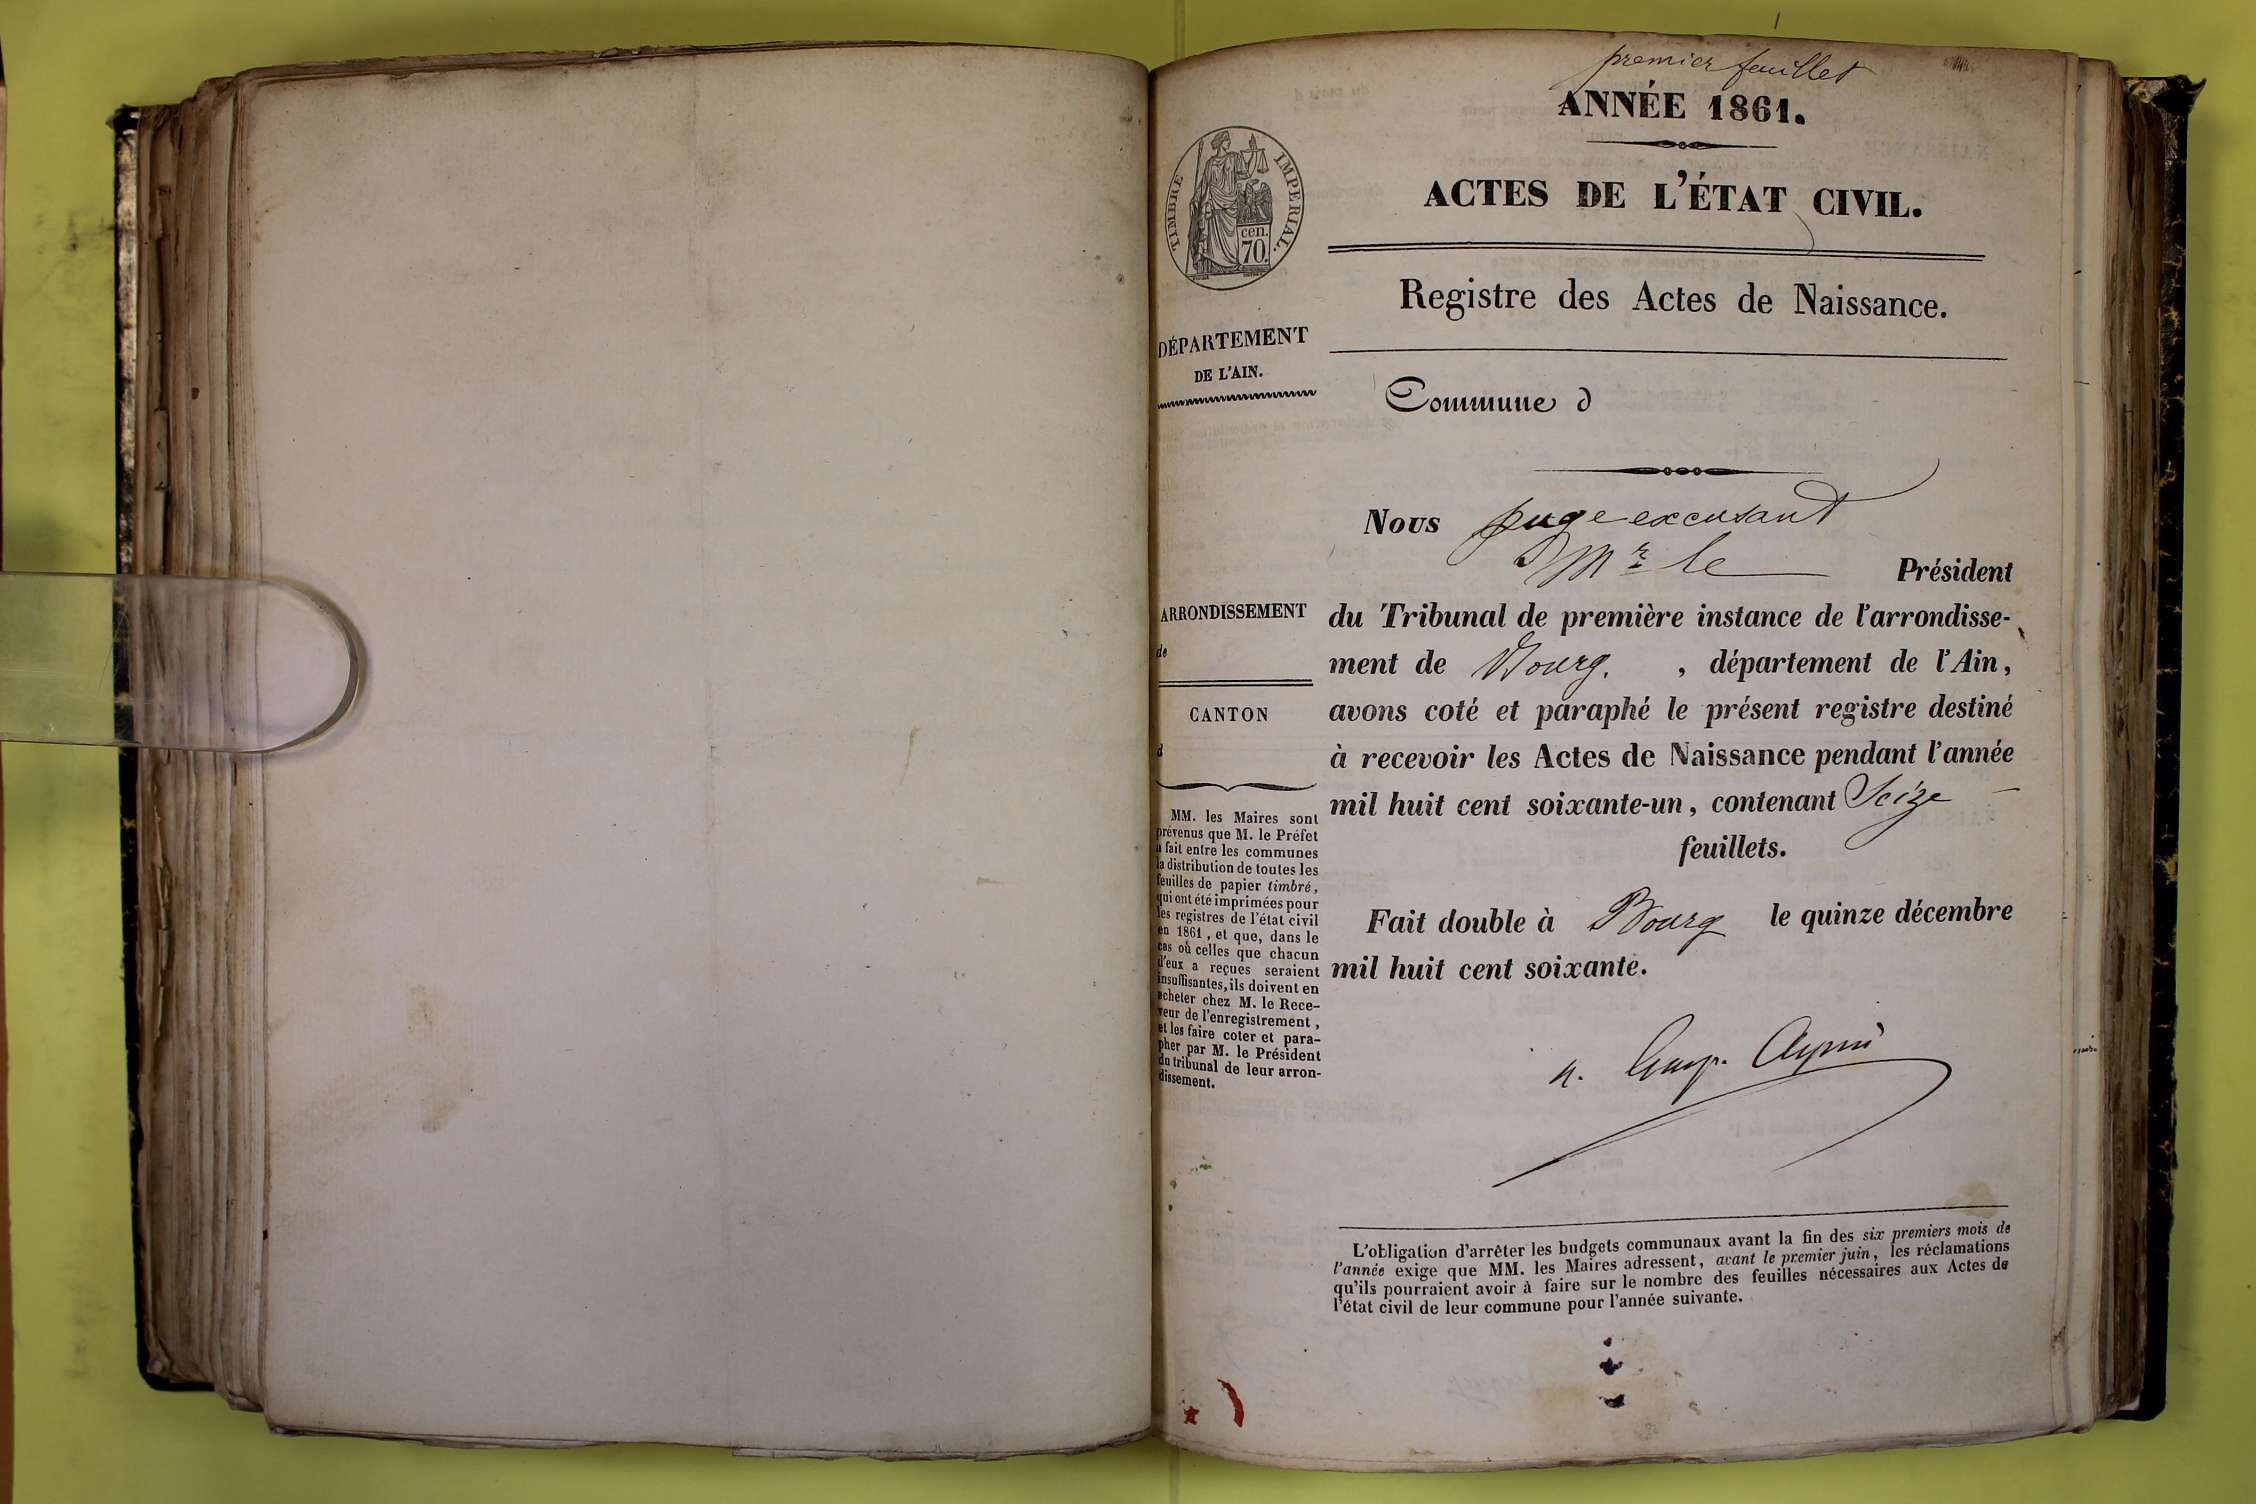 premier feuillet
ANNÉE 1861.
ACTES DE L'ÉTAT CIVIL.
Registre des Actes de Naissance.
Commune d
Nous juge excusant
Mr le Président
du Tribunal de première instance de l'arrondisse-
ment de Bourg. , département de l'Ain,
avons coté et paraphé le présent registre destiné
à recevoir les Actes de Naissance pendant l'année
mil huit cent soixante-un, contenant Seize
feuillets.
Fait double à Bourg le quinze décembre
mil huit cent soixante.
TIMBRE IMPERIAL.
cen.
70.
DÉPARTEMENT
DE L'AIN.
ARRONDISSEMENT
de
CANTON
d
MM. les Maires sont
prévenus que M. le Préfet
a fait entre les communes
la distribution de toutes les
feuilles de papier timbré,
qui ont été imprimées pour
les registres de l'état civil
en 1861, et que, dans le
cas où celles que chacun
d'eux a reçues seraient
insuffisantes, ils doivent en
acheter chez M. le Rece-
veur de l'enregistrement,
et les faire coter et para-
pher par M. le Président
du tribunal de leur arron-
dissement.
L'obligation d'arrêter les budgets communaux avant la fin des six premiers mois de
l'année exige que MM. les Maires adressent, avant le premier juin, les réclamations
qu'ils pourraient avoir à faire sur le nombre des feuilles nécessaires aux Actes de
l'état civil de leur commune pour l'année suivante.